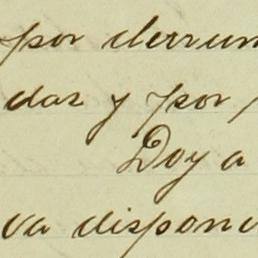 por derrum
dar y por
Doy a
va dispon